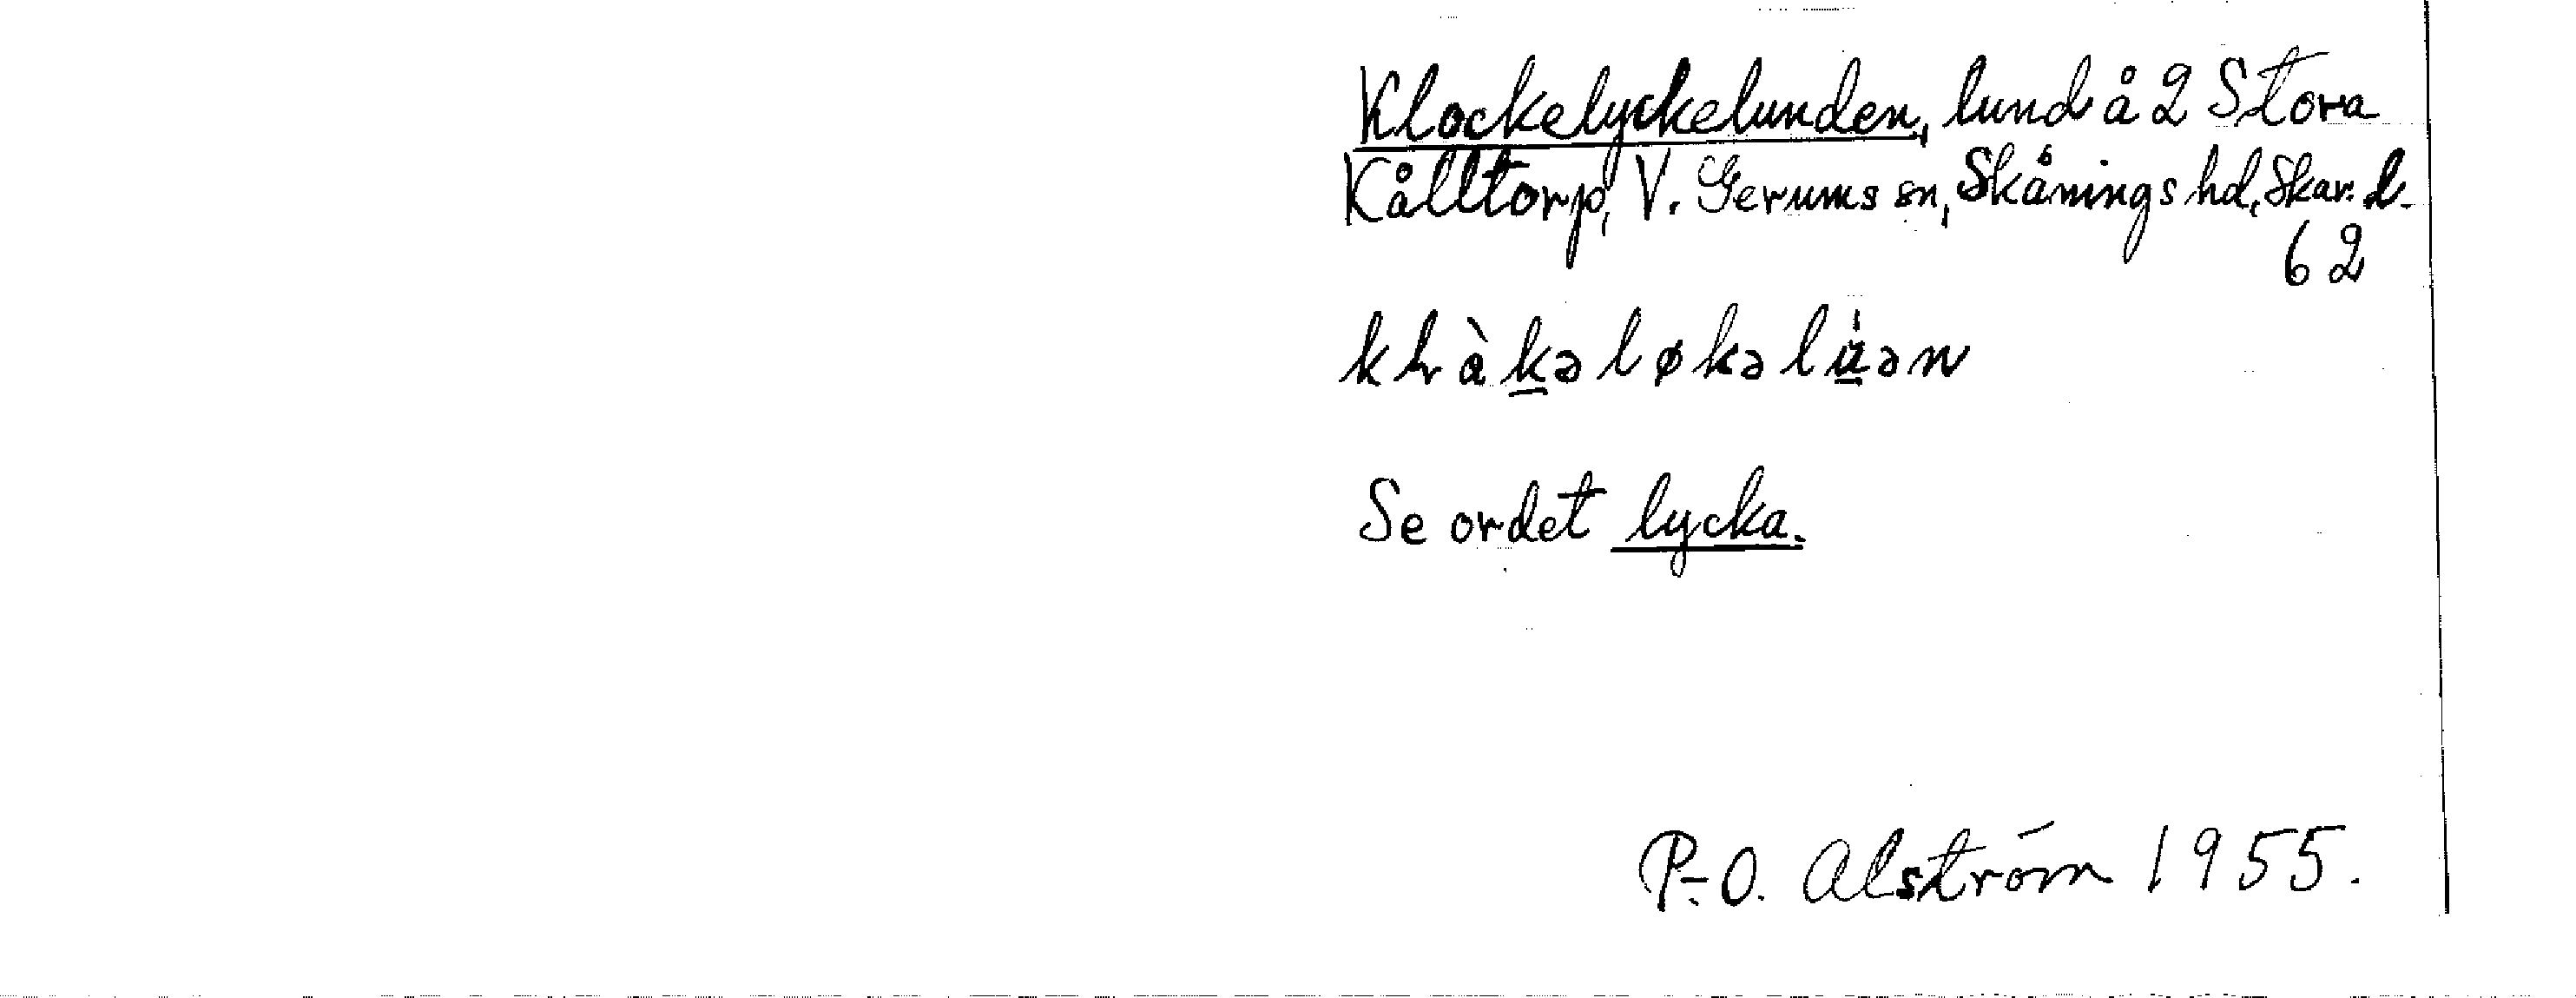 Klockelyckelunden, lund å 2 Stora
Kålltorp, V. Gerums sn, Skånings hd, Skar. l.
62
Se ordet lycka.
P.-O. Alström 1955.